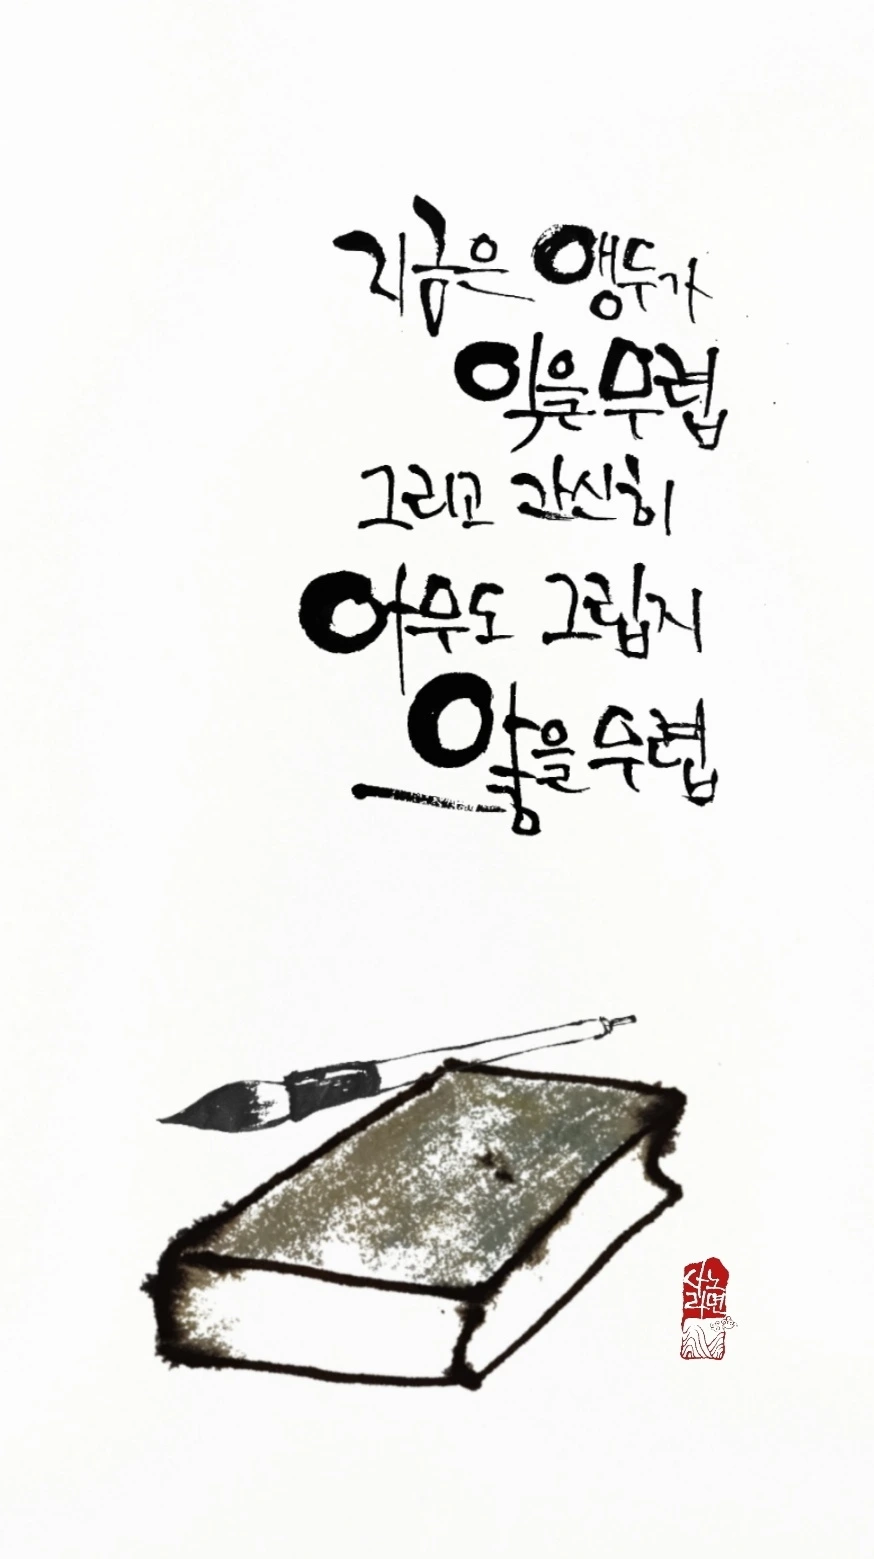 지금은 앵두가
익을 무렵
그리고 간신히
아무도 그립지
않을 무렵